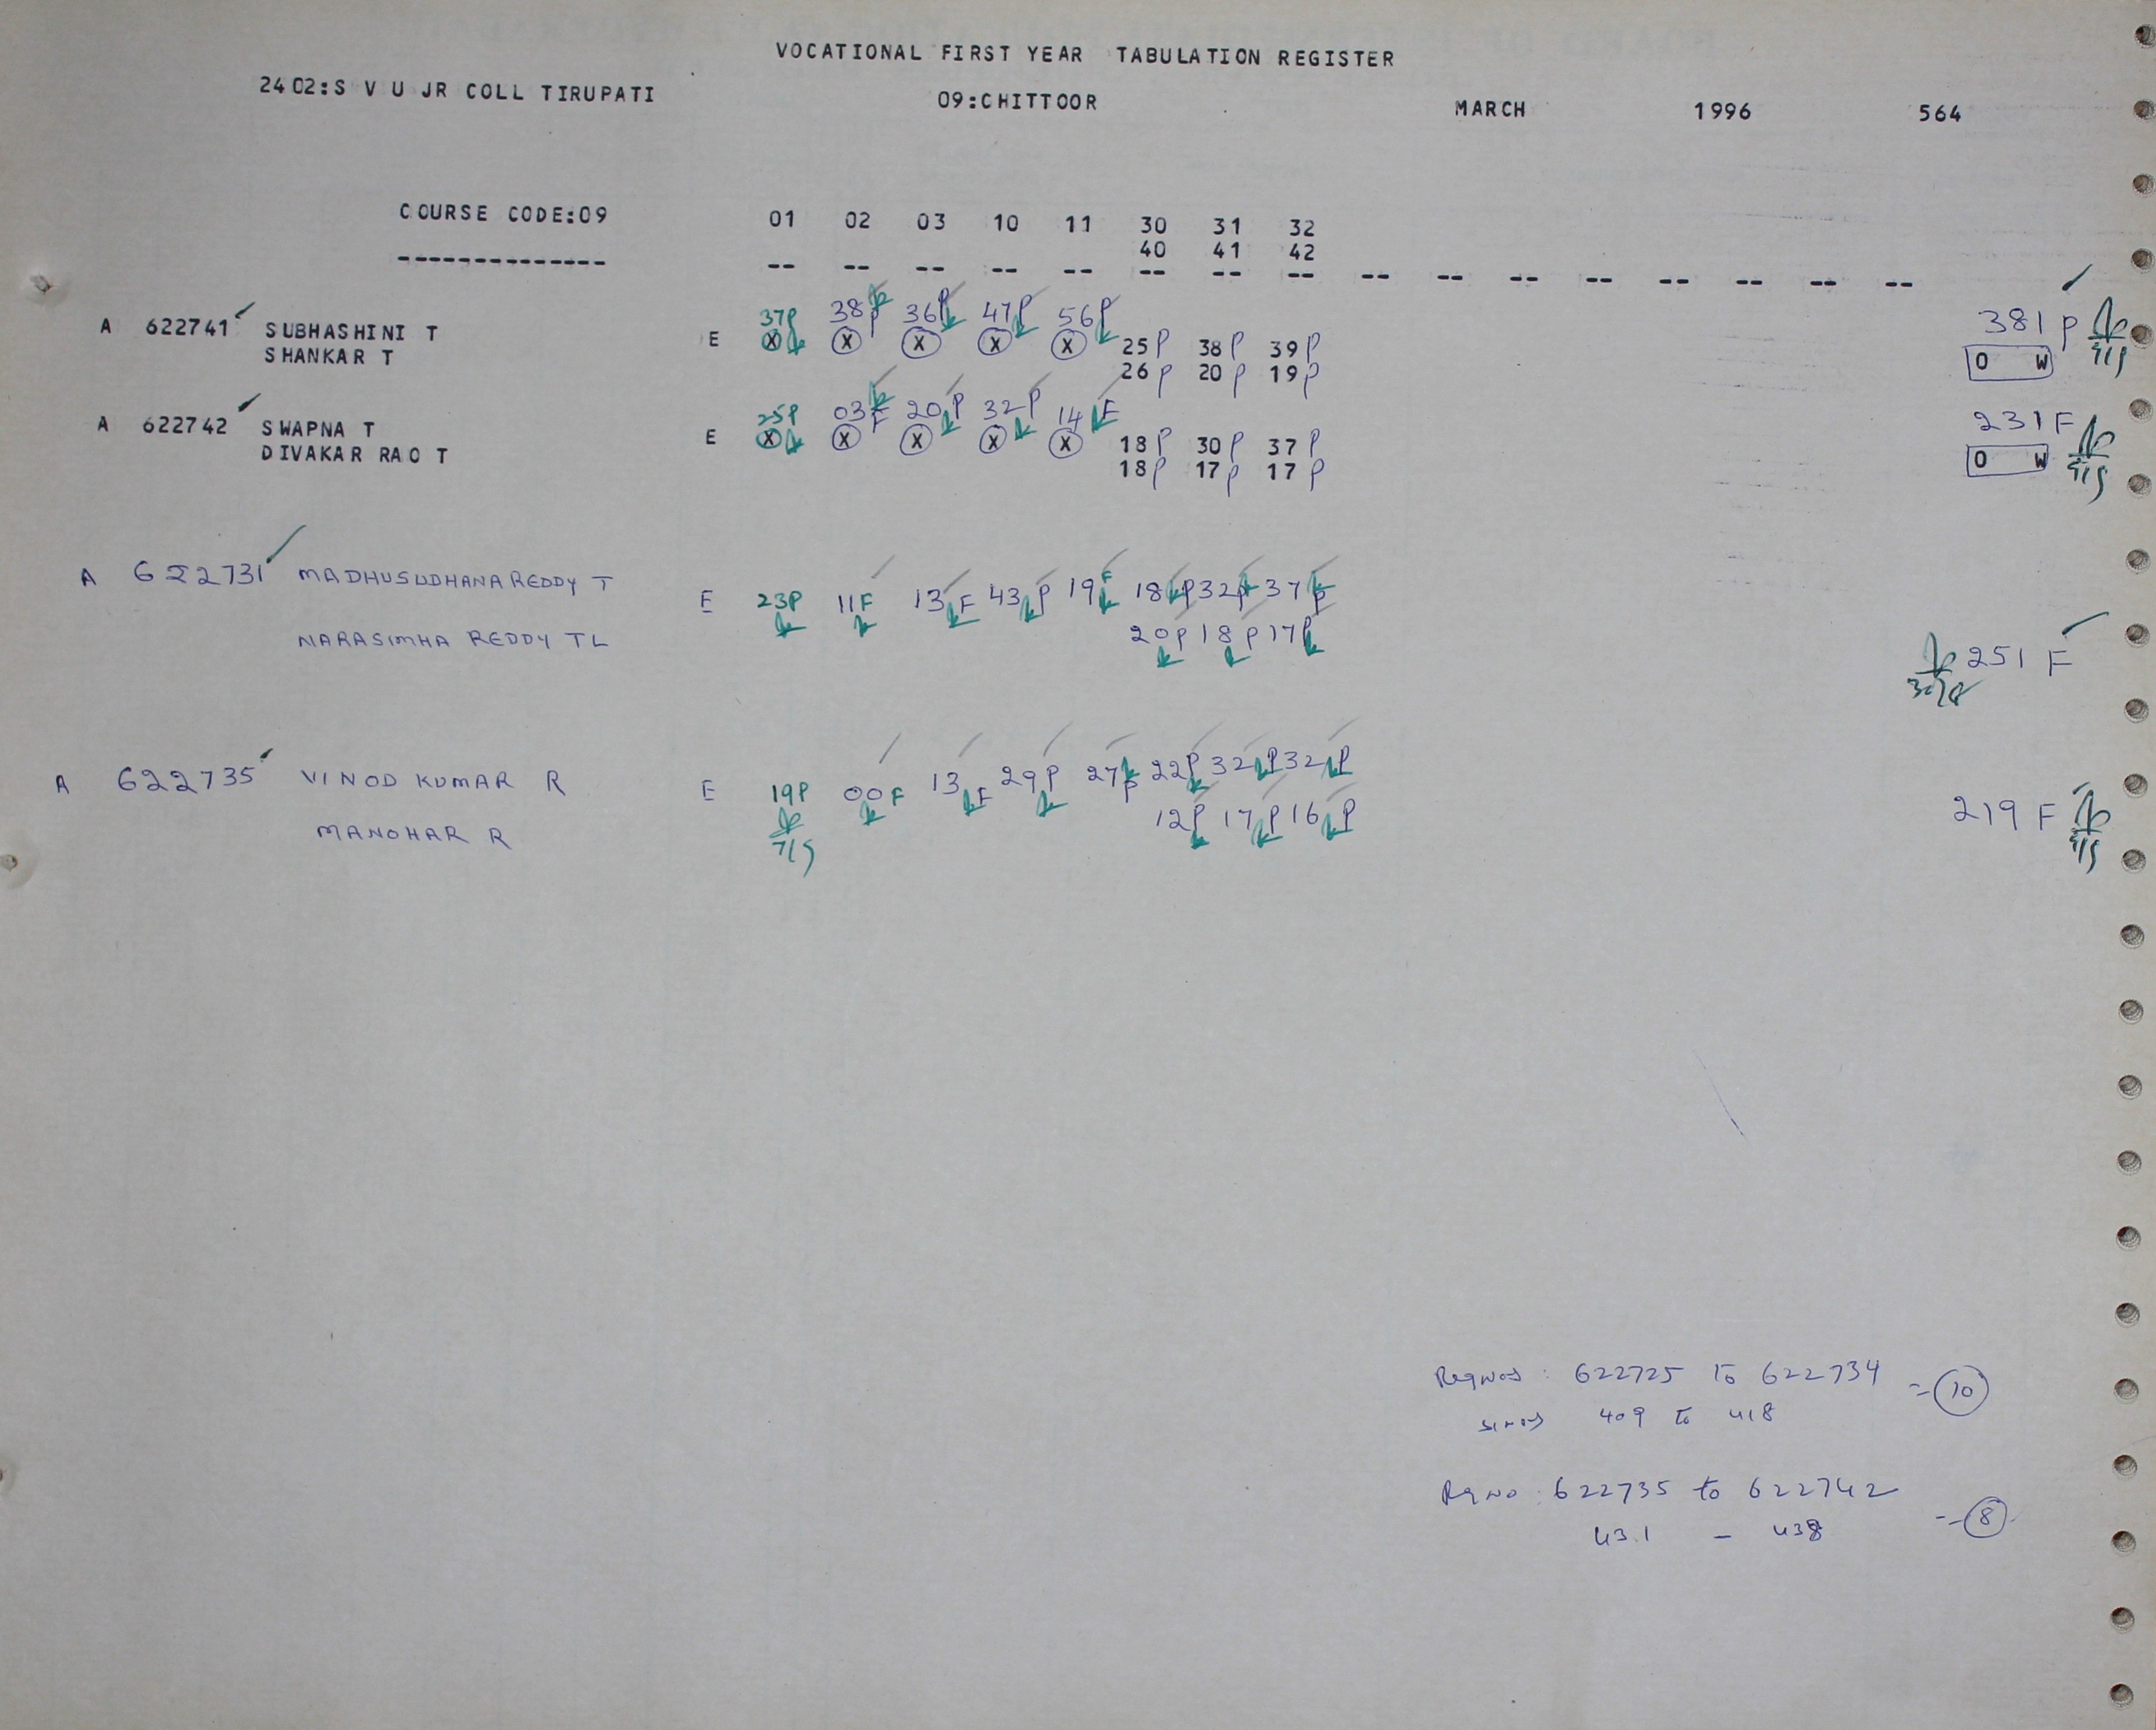 VOCATIONAL FIRST YEAR TABULATION REGISTER
2402:S V U JR COLL TIRUPATI 09:CHITTOOR MARCH 1996 564
COURSE CODE:09 01 02 03 10 11 30 31 32
40 41 42
-------------- -- -- -- -- -- -- -- -- -- -- -- -- -- -- -- --
37P 38P 36P 47P 56P 381 P
A 622741 SUBHASHINI T E X X X X X 25P 38P 39P O W
SHANKAR T 26P 20P 19P
25P 03F 20P 32P 14F 231F
A 622742 SWAPNA T E X X X X X 18P 30P 37P O W
DIVAKAR RAO T 18P 17P 17P
A 622731 MADHUSUDHANA REDDY T E 23P 11F 13F 43P 19F 18P 32P 37P
NARASIMHA REDDY TL 20P 18P 17P 251 F
A 622735 VINOD KUMAR R E 19P 00F 13F 29P 27P 22P 32P 32P
MANOHAR R 12P 17P 16P 219 F
Regnos : 622725 to 622734 = 10
409 to 418
Regno : 622735 to 622742 -- 8
431 - 438